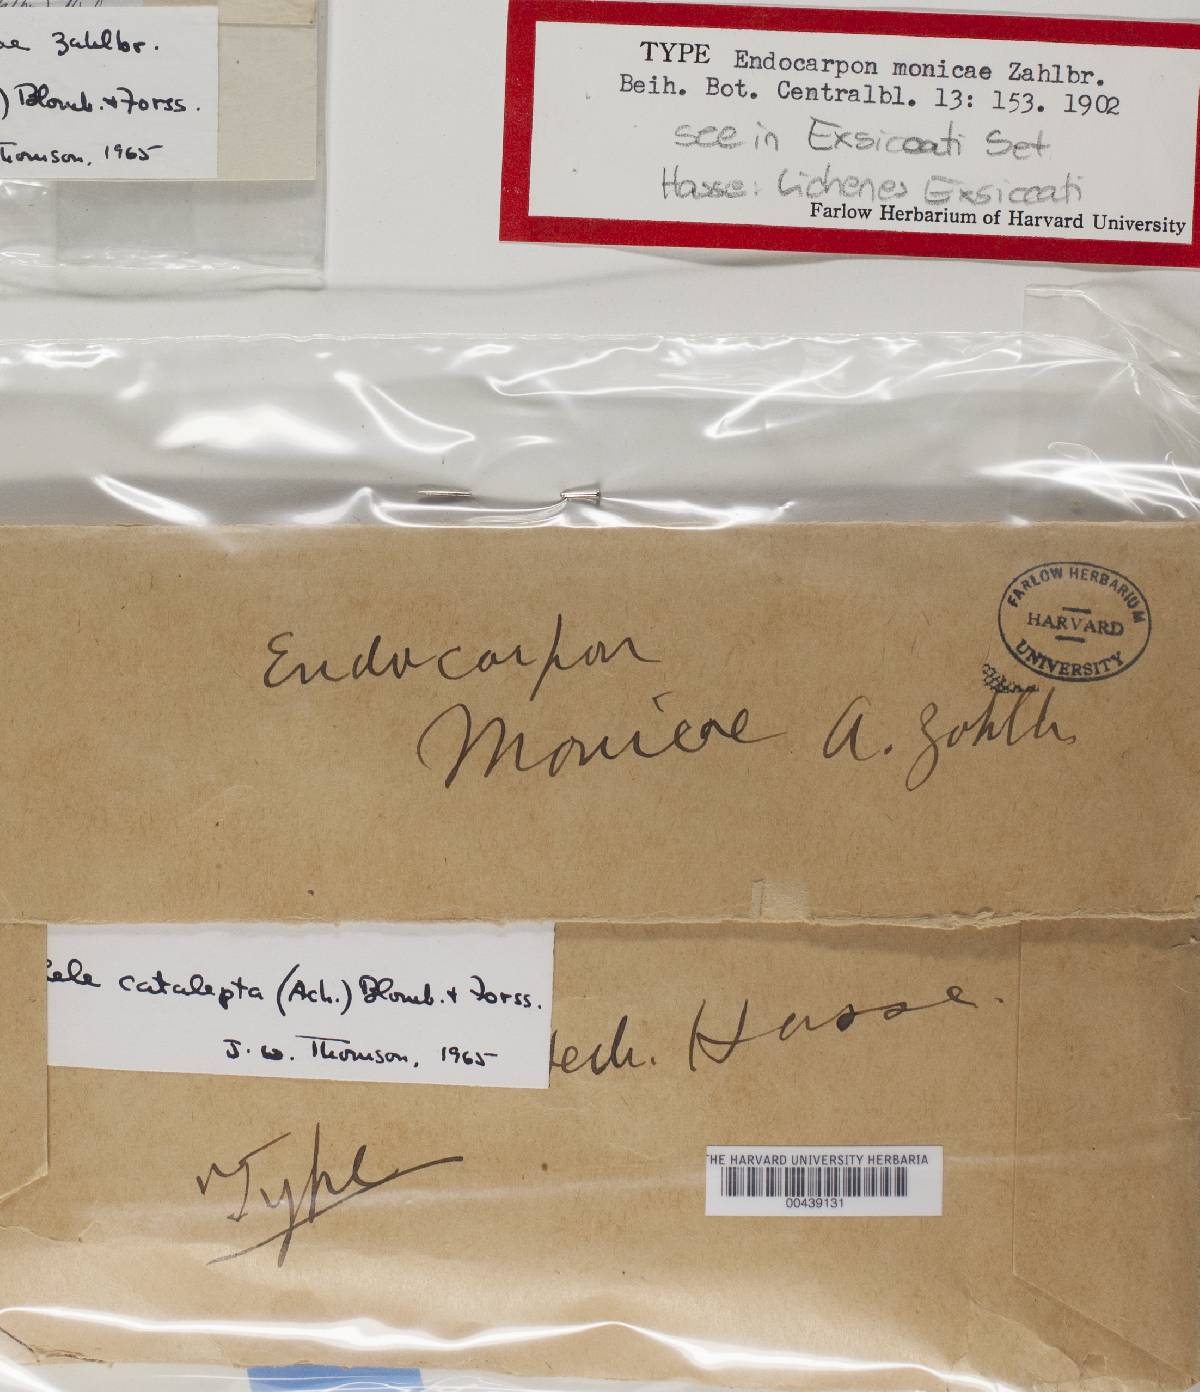 Zahlbr.
) Blomb. & Forss.
Thomson, 1965
TYPE Endocarpon monicae Zahlbr.
Beih. Bot. Centralbl. 13: 153. 1902
see in Exsiccati Set
Hasse: Lichenes Exsiccati
Farlow Herbarium of Harvard University
FARLOW HERBARIUM
HARVARD
UNIVERSITY
Endocarpon
Monicae A. Zahlb.
cele catalepta (Ach.) Blomb. & Forss.
J. W. Thomson, 1965
Hasse.
Type
THE HARVARD UNIVERSITY HERBARIA
00439131